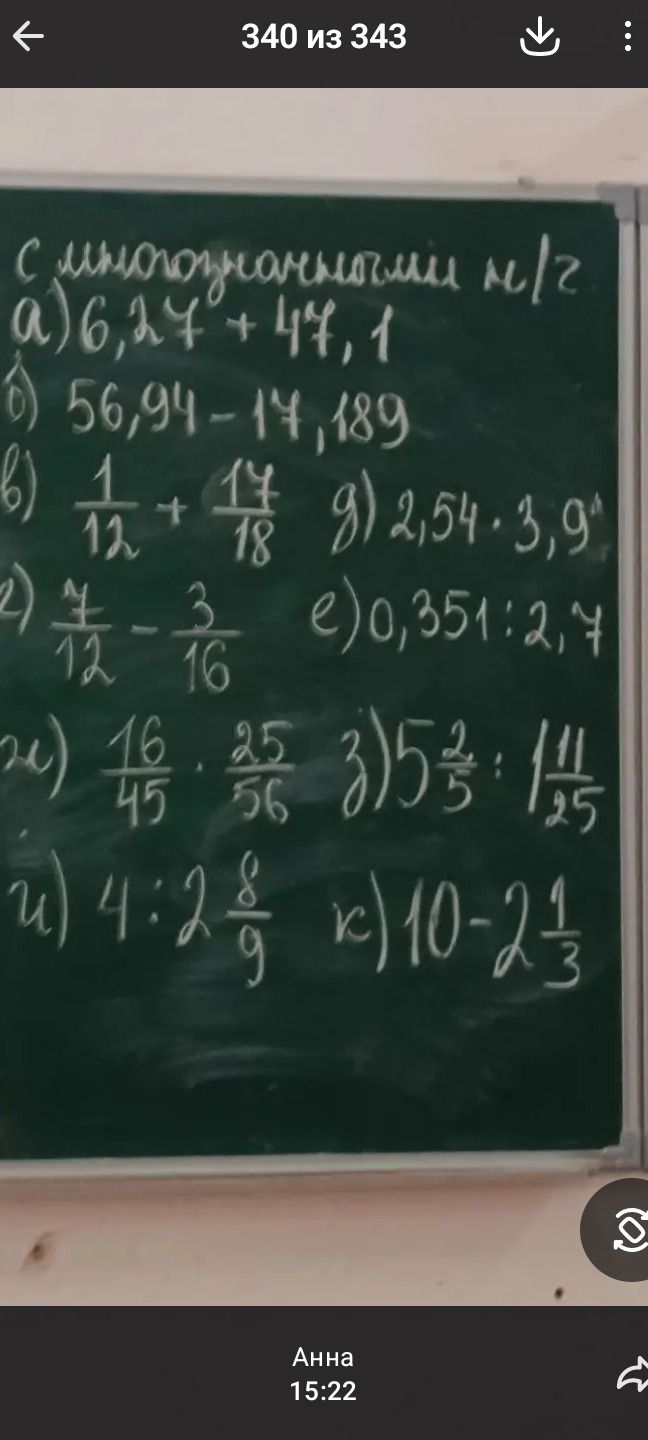 340 из 343
с многозначными н/г
а) 6,27 + 47,1
б) 56,94 - 17,189
в) 1/12 + 17/18
д) 2,54 · 3,9
г) 7/12 - 3/16
е) 0,351 : 2,7
ж) 16/45 · 25/56
з) 5 2/5 : 1 11/25
и) 4 : 2 8/9
к) 10 - 2 1/3
Анна
15:22